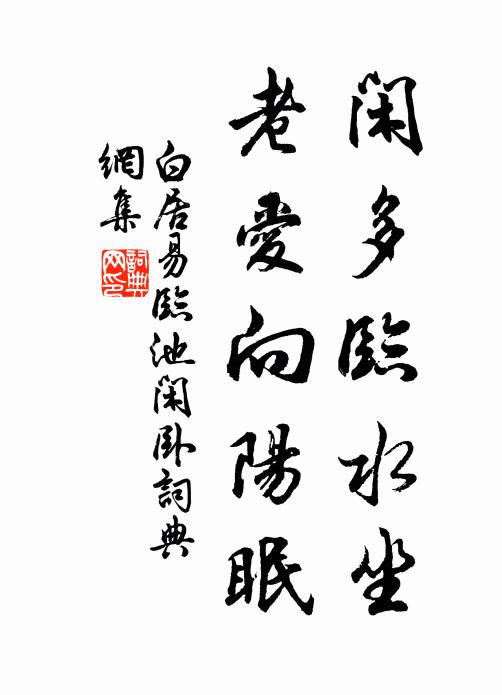 閑多臨水坐
老愛向陽眠
白居易臨池閑卧詞典
網集
詞典
网印